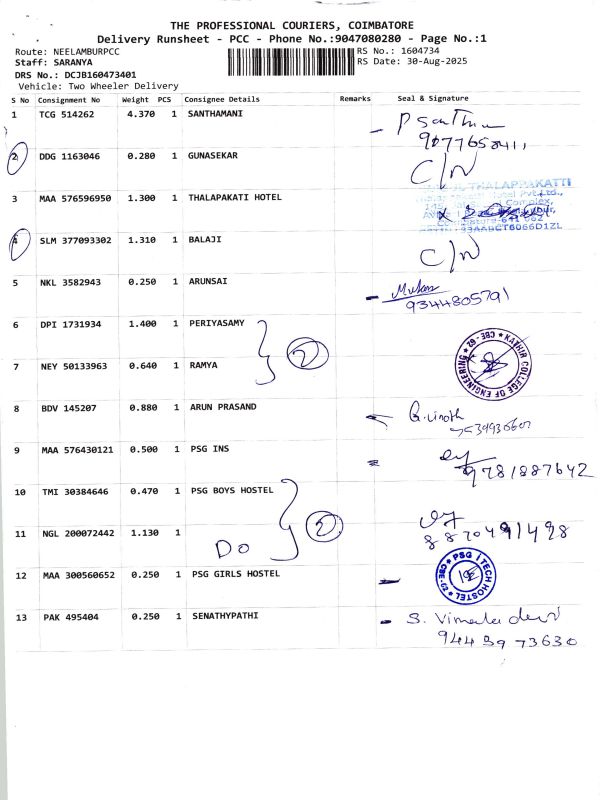 THE PROFESSIONAL COURIERS, COIMBATORE
Delivery Runsheet - PCC - Phone No.:9047080280 - Page No.:1
Route: NEELAMBURPCC RS No.: 1604734
Staff: SARANYA RS Date: 30-Aug-2025
DRS No.: DCJB160473401
Vehicle: Two Wheeler Delivery
S No Consignment No Weight PCS Consignee Details Remarks Seal & Signature
1 TCG 514262 4.370 1 SANTHAMANI
2 DDG 1163046 0.280 1 GUNASEKAR C/N
3 MAA 576596950 1.300 1 THALAPAKATI HOTEL
THALAPPAKATTI
4 SLM 377093302 1.310 1 BALAJI C/N
5 NKL 3582943 0.250 1 ARUNSAI
9344805791
6 DPI 1731934 1.400 1 PERIYASAMY
2
KATHIR COLLEGE OF ENGINEERING CBE - 62
7 NEY 50133963 0.640 1 RAMYA
8 BDV 145207 0.880 1 ARUN PRASAND G. vinoth
9 MAA 576430121 0.500 1 PSG INS
9781887642
10 TMI 30384646 0.470 1 PSG BOYS HOSTEL
2
11 NGL 200072442 1.130 1 DO
8870491498
12 MAA 300560652 0.250 1 PSG GIRLS HOSTEL
PSG iTECH HOSTEL CBE-62
13 PAK 495404 0.250 1 SENATHYPATHI S. Vimala devi
94439 73630